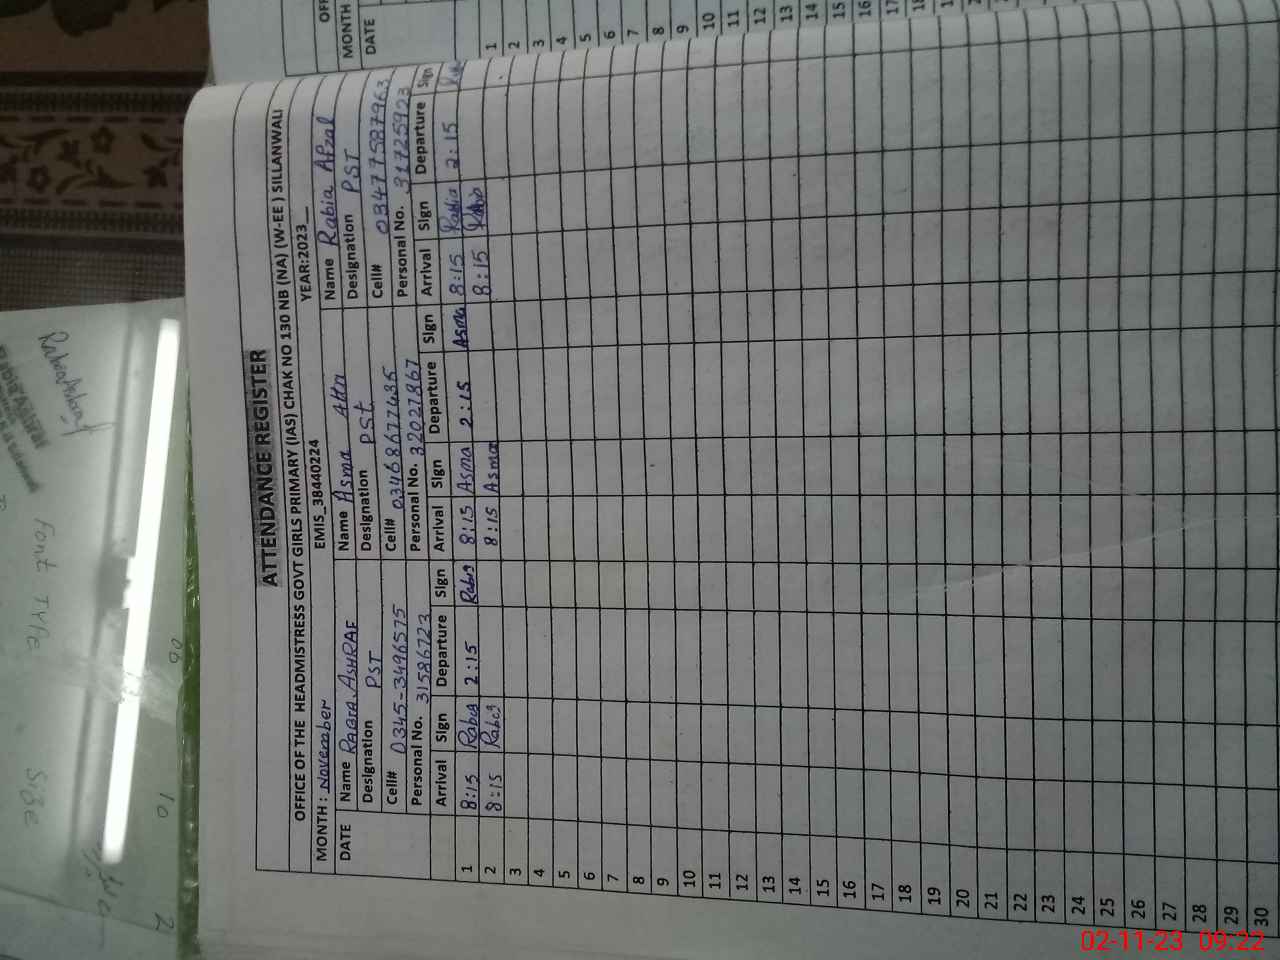 ATTENDANCE REGISTER
OFFICE OF THE HEADMISTRESS GOVT GIRLS PRIMARY (IAS) CHAK NO 130 NB (NA) (W-EE ) SILLANWALI
MONTH : November EMIS_38440224 YEAR:2023__
DATE Name ASHRAF Name Asma Name Rabia Afzal
Designation PST Designation PST Designation PST
Cell# 0345-3496575 Cell# 03468677435 Cell# 03477587963
Personal No. 31586723 Personal No. 32027867 Personal No. 31725923
Arrival Sign Departure Sign Arrival Sign Departure Sign Arrival Sign Departure Sign
1 8:15 2:15 8:15 Asma 2:15 Asma 8:15 Rabia 2:15
2 8:15 8:15 Asma 8:15
3
4
5
6
7
8
9
10
11
12
13
14
15
16
17
18
19
20
21
22
23
24
25
26
27
28
29
30
MONTH
DATE
1
2
3
4
5
6
7
8
9
10
11
12
13
14
15
16
Font Type
Size
10
02-11-23 09:22